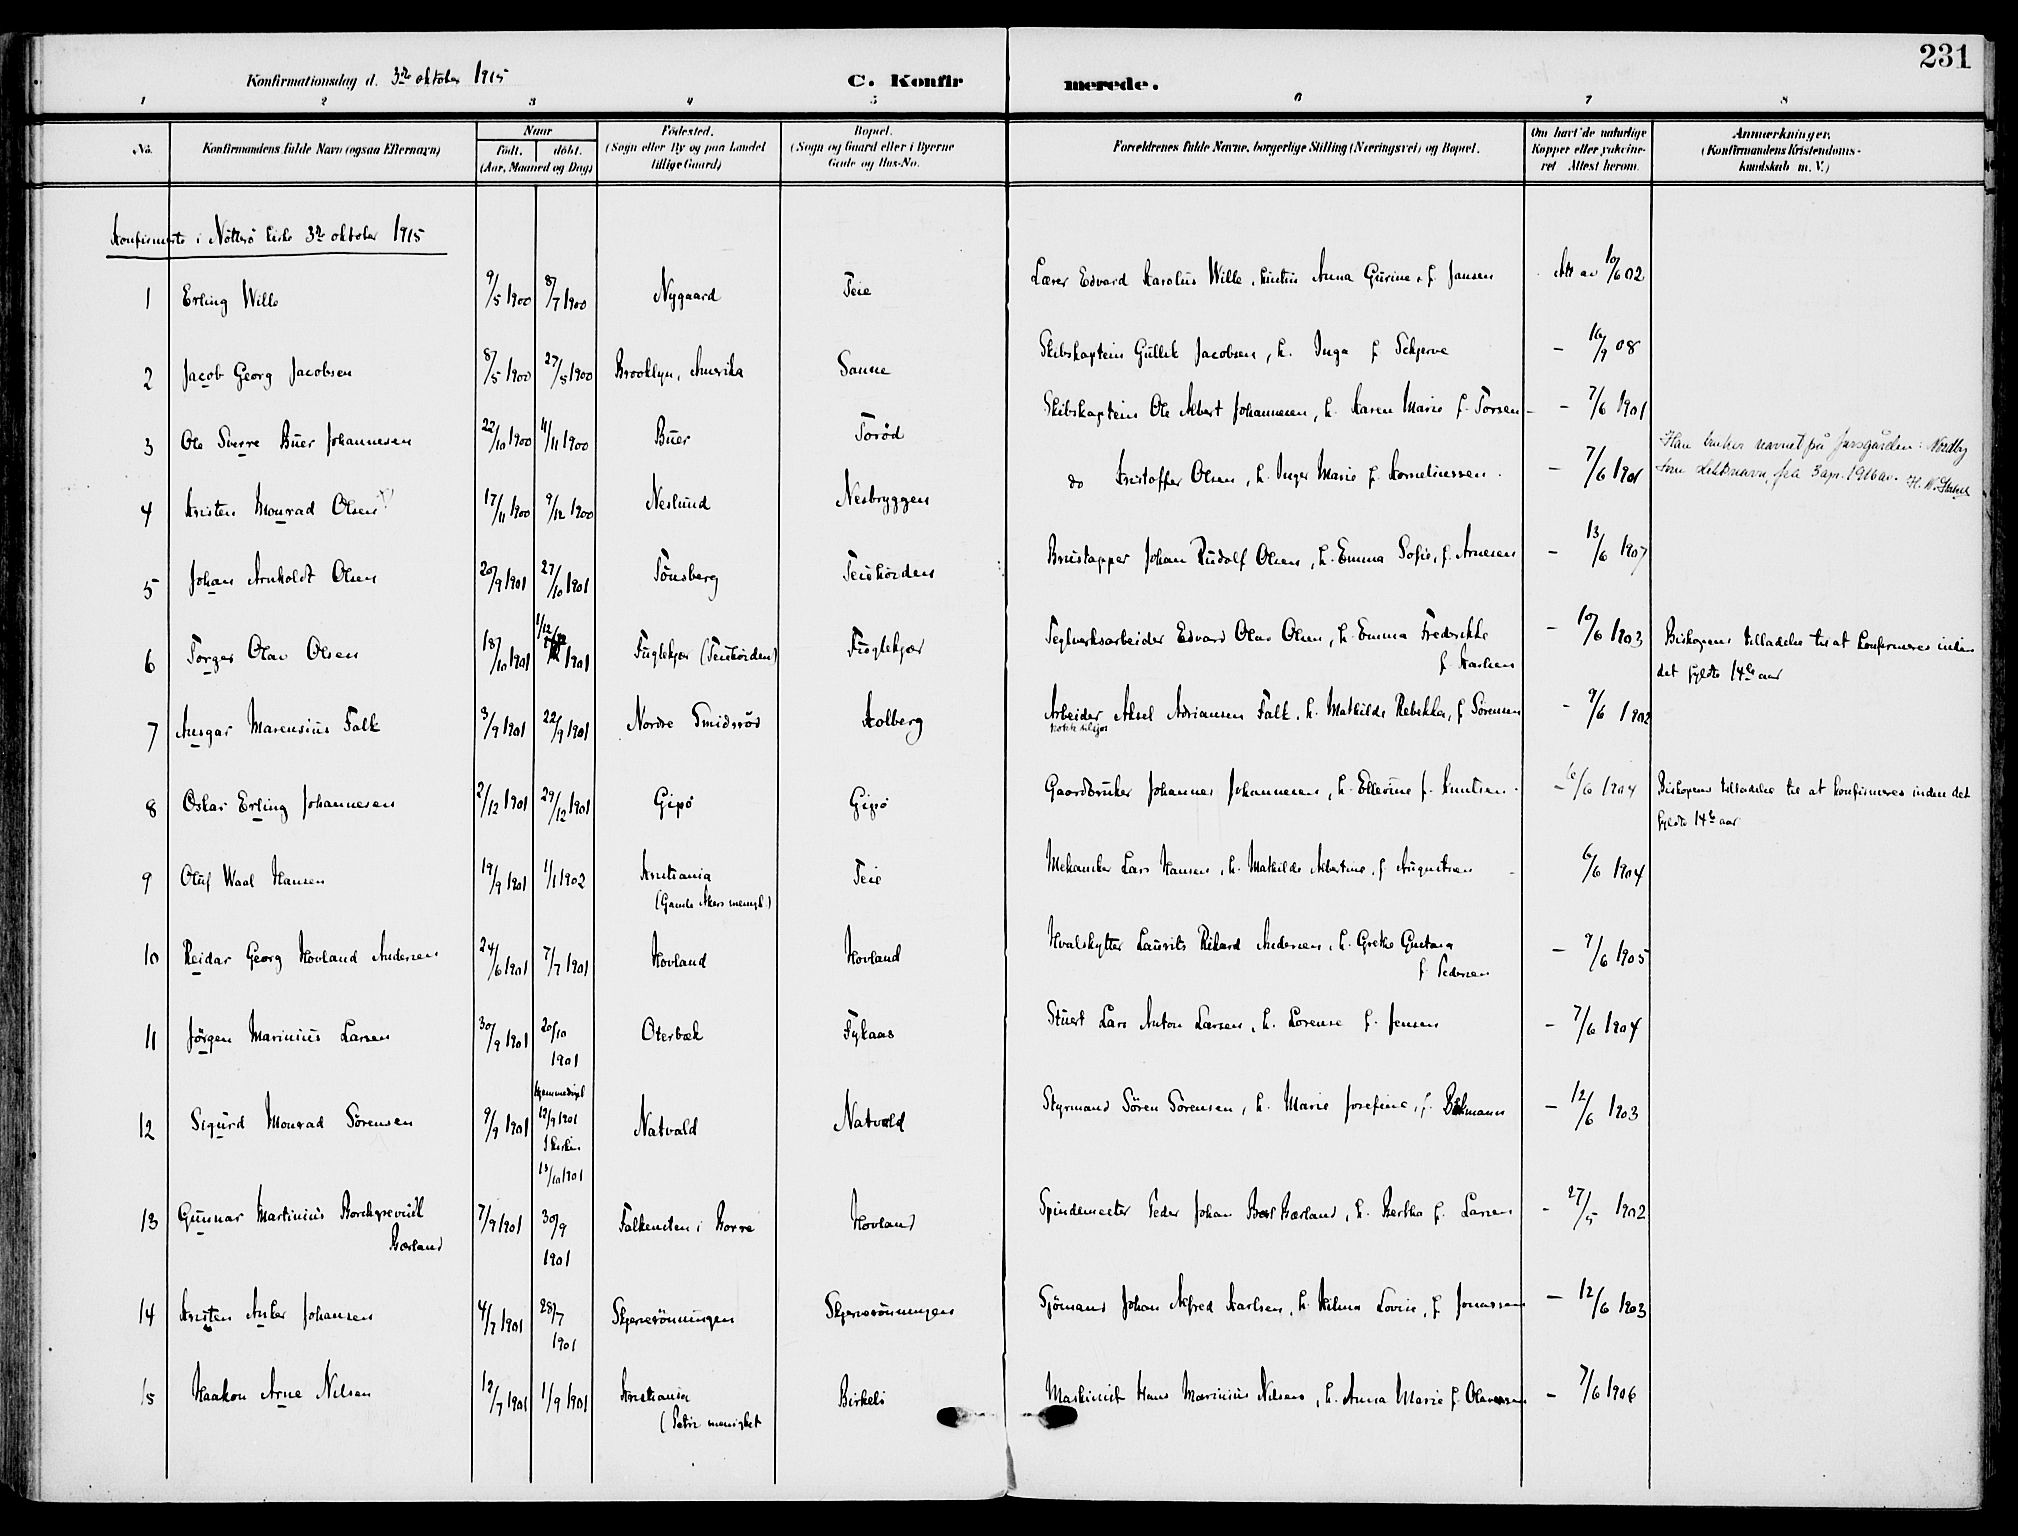 231
Konfirmationsdag d. 3die oktober 1915
C. Konfirmerede.
1 2 3 4 5 6 7 8
No.
Konfirmandens fulde Navn (ogsaa Efternavn)
Naar
födt. döbt.
(Aar, Maaned og Dag)
Födested.
(Sogn eller By og paa Landet
tillige Gaard)
Bopæl.
(Sogn og Gaard eller i Byerne
Gade og Hus-No.
Forældrenes fulde Navne, borgerlige Stilling (Næringsvei) og Bopæl.
Om havt de naturlige
Kopper eller vakcine-
ret Attest herom.
Anmærkninger.
(Konfirmandens Kristendoms-
kundskab m. V.)
Konfirmerte i Nötterö kirke 3die oktober 1915
1 Erling Wille 9/5 1900 8/7 1900 Nygaard Teie Lærer Edvard Karolus Wille, hustru Anna Gurine f. Jansen Att av 10/6 02
2 Jacob Georg Jacobsen 8/5 1900 27/5 1900 Brooklyn, Amerika Sanne Skibskaptein Gullik Jacobsen, h. Inga f. Schjerve - 16/9 08
3 Ole Sverre Buer Johannesen 22/10 1900 11/11 1900 Buer Torød Skibskaptein Ole Albert Johannesen, h. Karen Marie f. Torsen - 7/6 1901
4 Kristen Monrad Olsen 17/11 1900 9/12 1900 Neslund Nesbryggen do Kristoffer Olsen, h. Inger Marie f. Korneliussen - 7/6 1901
Han bruker navnet på farsgården: Nordby
som slektsnavn fra 3 apr. 1916 av.
5 Johan Arnholdt Olsen 20/9 1901 27/10 1901 Tönsberg Teiehöiden Brustapper Johan Rudolf Olsen, h. Emma Sofie, f. Arnesen - 13/6 1907
6 Torger Olav Olsen 18/10 1901 1/12 1901 Fuglekjær (Teiehöiden) Fuglekjær Teglverksarbeider Edvard Olav Olsen, h. Emma Fredrikke
f. Karlsen - 10/6 1903 Biskopens tilladelse til at konfirmeres inden
det fyldte 14de aar
7 Ansgar Marensius Falk 3/9 1901 22/9 1901 Nordre Smidsrød Kolberg Arbeider Aksel Adriansen Falk, h. Mathilde Rebekka, f. Sörensen - 9/6 1902
8 Oskar Erling Johannesen 2/12 1901 29/12 1901 Gipö Gipö Gaardbruker Johannes Johannesen, h. Ellevine f. Knutsen - 6/6 1904 Biskopens tilladelse til at konfirmeres inden det
fyldte 14de aar
9 Oluf Waal Hansen 19/9 1901 1/1 1902 Kristiania Teie Mekaniker Lars Hansen, h. Mathilde Albertine, f. Augustsen 6/6 1904
(Gamle Akers menigh.)
10 Reidar Georg Hovland Andersen 24/6 1901 7/7 1901 Hovland Hovland Hvalskytter Laurits Rikard Andersen, h. Grethe Gustava
f. Pedersen - 9/6 1905
11 Jörgen Marinius Larsen 30/9 1901 20/10
1901 Oterbæk Tykaas Stuert Lars Anton Larsen, h. Lorense f. Jensen - 7/6 1904
12 Sigurd Monrad Sörensen 9/9 1901 Hjemmedöpt
12/9 1901
I kirken
13/10 1901 Natvald Natvold Styrmand Sören Sörensen, h. Marie Josefine, f. Bekmann - 12/6 1903
13 Gunnar Martinius Borchgrevink
Bærland 7/9 1901 30/9
1901 Falkensten i Borre Hovland Spindemester Peder Johan Bærland, h. Bertha f. Larsen - 27/5 1902
14 Kristen Anker Johansen 4/7 1901 28/7
1901 Skjerverönningen Skjerverönningen Sjömand Johan Alfred Karlsen, h. Hilma Lovise, f. Jonassen - 12/6 1903
15 Haakon Arne Nilsen 12/7 1901 1/9 1901 Kristiania Birkeli Maskinist Hans Marinius Nilsen, h. Anna Marie f. Olavesen - 7/6 1906
(Petri menighet